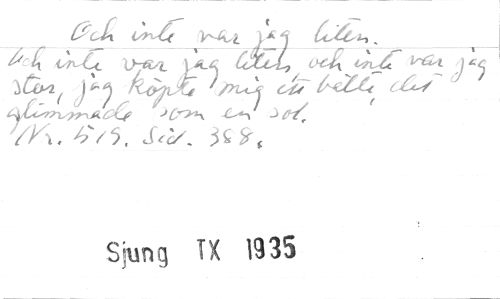 Och inte var jag liten.
Och inte var jag liten och inte var jag
stor, jag köpte mig ett bälte, det
glimmade som en sol.
Nr. 519. Sid. 388.
Sjung TX 1935